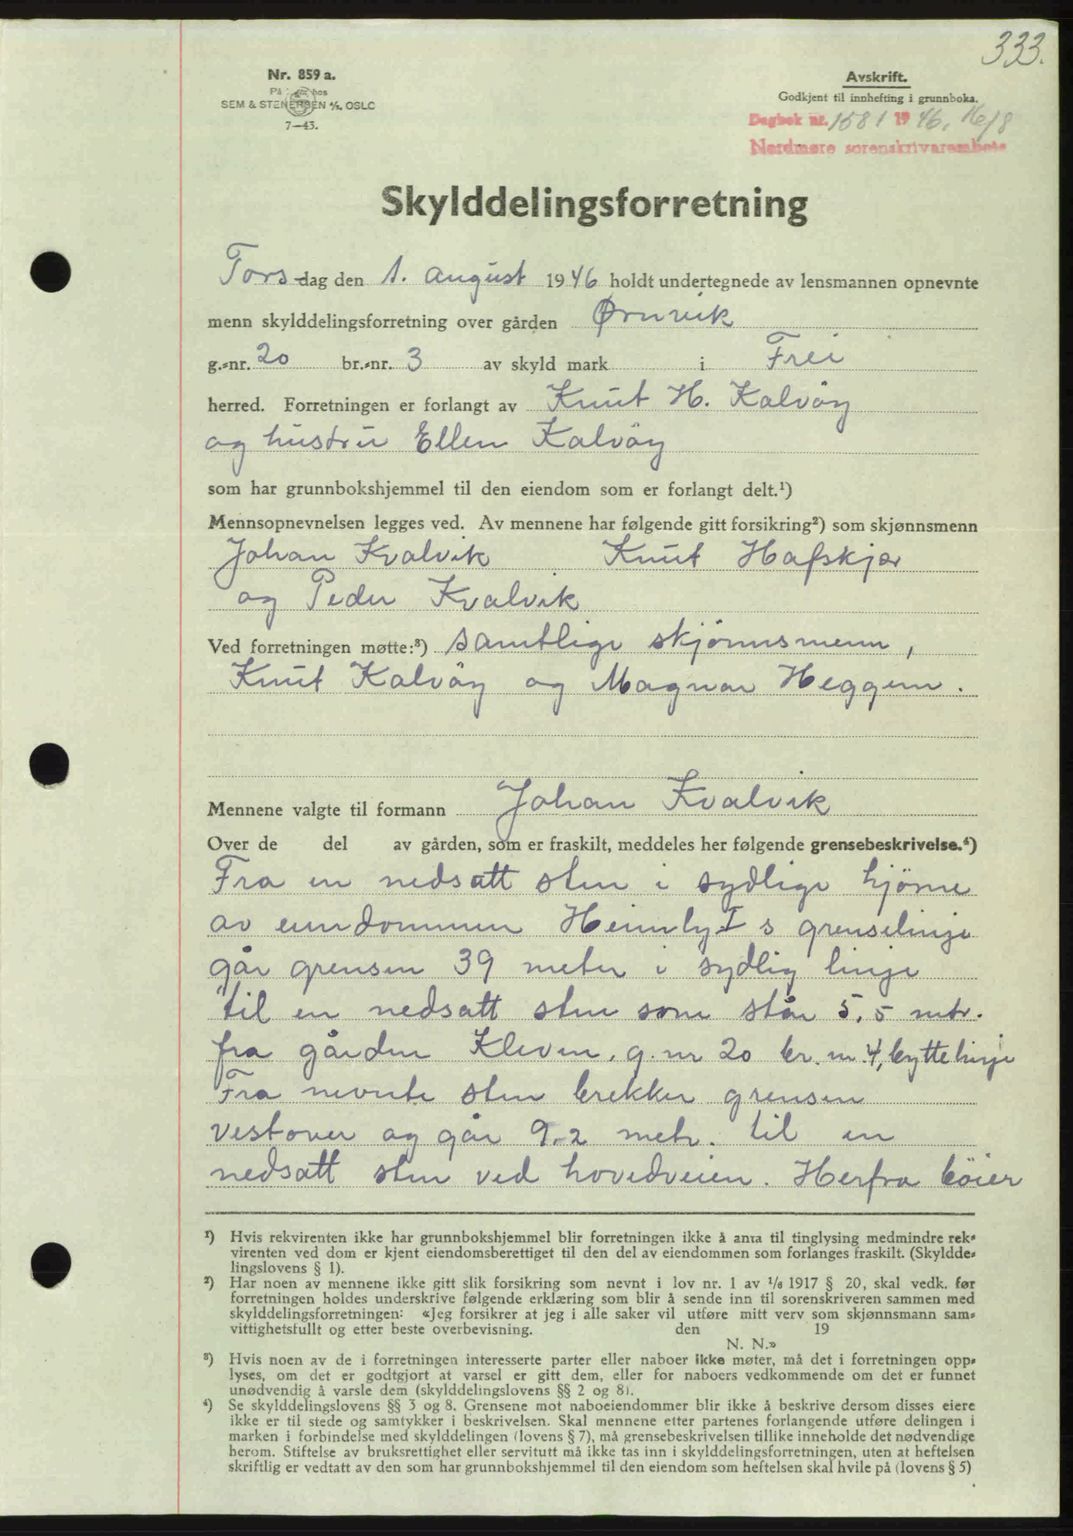 333.
Nr. 859 a.
På
hos
SEM & STENERSEN A/S. OSLO
7—43.
Avskrift.
Godkjent til innhefting i grunnboka.
Dagbok nr. 1581 19 46, 16/8
Nordmøre sorenskriverembete
Skylddelingsforretning
Tors-dag den 1. august 1946 holdt undertegnede av lensmannen opnevnte
menn skylddelingsforretning over gården Ørnvik
g.-nr. 20 br.-nr. 3 av skyld mark i Frei
herred. Forretningen er forlangt av Knut H. Kalvöy
og hustru Ellen Kalvöy
som har grunnbokshjemmel til den eiendom som er forlangt delt.¹)
Mennsopnevnelsen legges ved. Av mennene har følgende gitt forsikring²) som skjønnsmenn
Johan Kvalvik Knut Hafskjær
og Peder Kvalvik
Ved forretningen møtte:³) samtlige skjönnsmenn,
Knut Kalvöy og Magnar Heggem.
Mennene valgte til formann Johan Kvalvik
Over de del av gården, som er fraskilt, meddeles her følgende grensebeskrivelse.⁴)
Fra en nedsatt sten i sydlige hjörne
av eiendommen Heimly I s grenselinje
går grensen 39 meter i sydlig linje
til en nedsatt sten som står 5,5 mtr.
fra gården Kleven, g. nr 20 br. nr. 4, byttelinje
Fra nevnte sten brekker grensen
vestover og går 9.2 metr. til en
nedsatt sten ved hovedveien. Herfra böier
¹) Hvis rekvirenten ikke har grunnbokshjemmel blir forretningen ikke å anta til tinglysing medmindre rek-
virenten ved dom er kjent eiendomsberettiget til den del av eiendommen som forlanges fraskilt. (Skyldde-
lingslovens § 1).
²) Har noen av mennene ikke gitt slik forsikring som nevnt i lov nr. 1 av 1/6 1917 § 20, skal vedk. før
forretningen holdes underskrive følgende erklæring som blir å sende inn til sorenskriveren sammen med
skylddelingsforretningen: «Jeg forsikrer at jeg i alle saker vil utføre mitt verv som skjønnsmann sam-
vittighetsfullt og etter beste overbevisning. den 19
N. N.»
³) Hvis noen av de i forretningen interesserte parter eller naboer ikke møter, må det i forretningen opp-
lyses, om det er godtgjort at varsel er gitt dem, eller for naboers vedkommende om det er funnet
unødvendig å varsle dem (skylddelingslovens §§ 2 og 8).
⁴) Se skylddelingslovens §§ 3 og 8. Grensene mot naboeiendommer blir ikke å beskrive dersom disses eiere
ikke er til stede og samtykker i beskrivelsen. Skal mennene etter partenes forlangende utføre delingen i
marken i forbindelse med skylddelingen (lovens § 7), må grensebeskrivelsen tillike inneholde det nødvendige
herom. Stiftelse av bruksrettighet eller servitutt må ikke tas inn i skylddelingsforretningen, uten at heftelsen
skriftlig er vedtatt av den som har grunnbokshjemmel til den eiendom som heftelsen skal hvile på (lovens § 5)